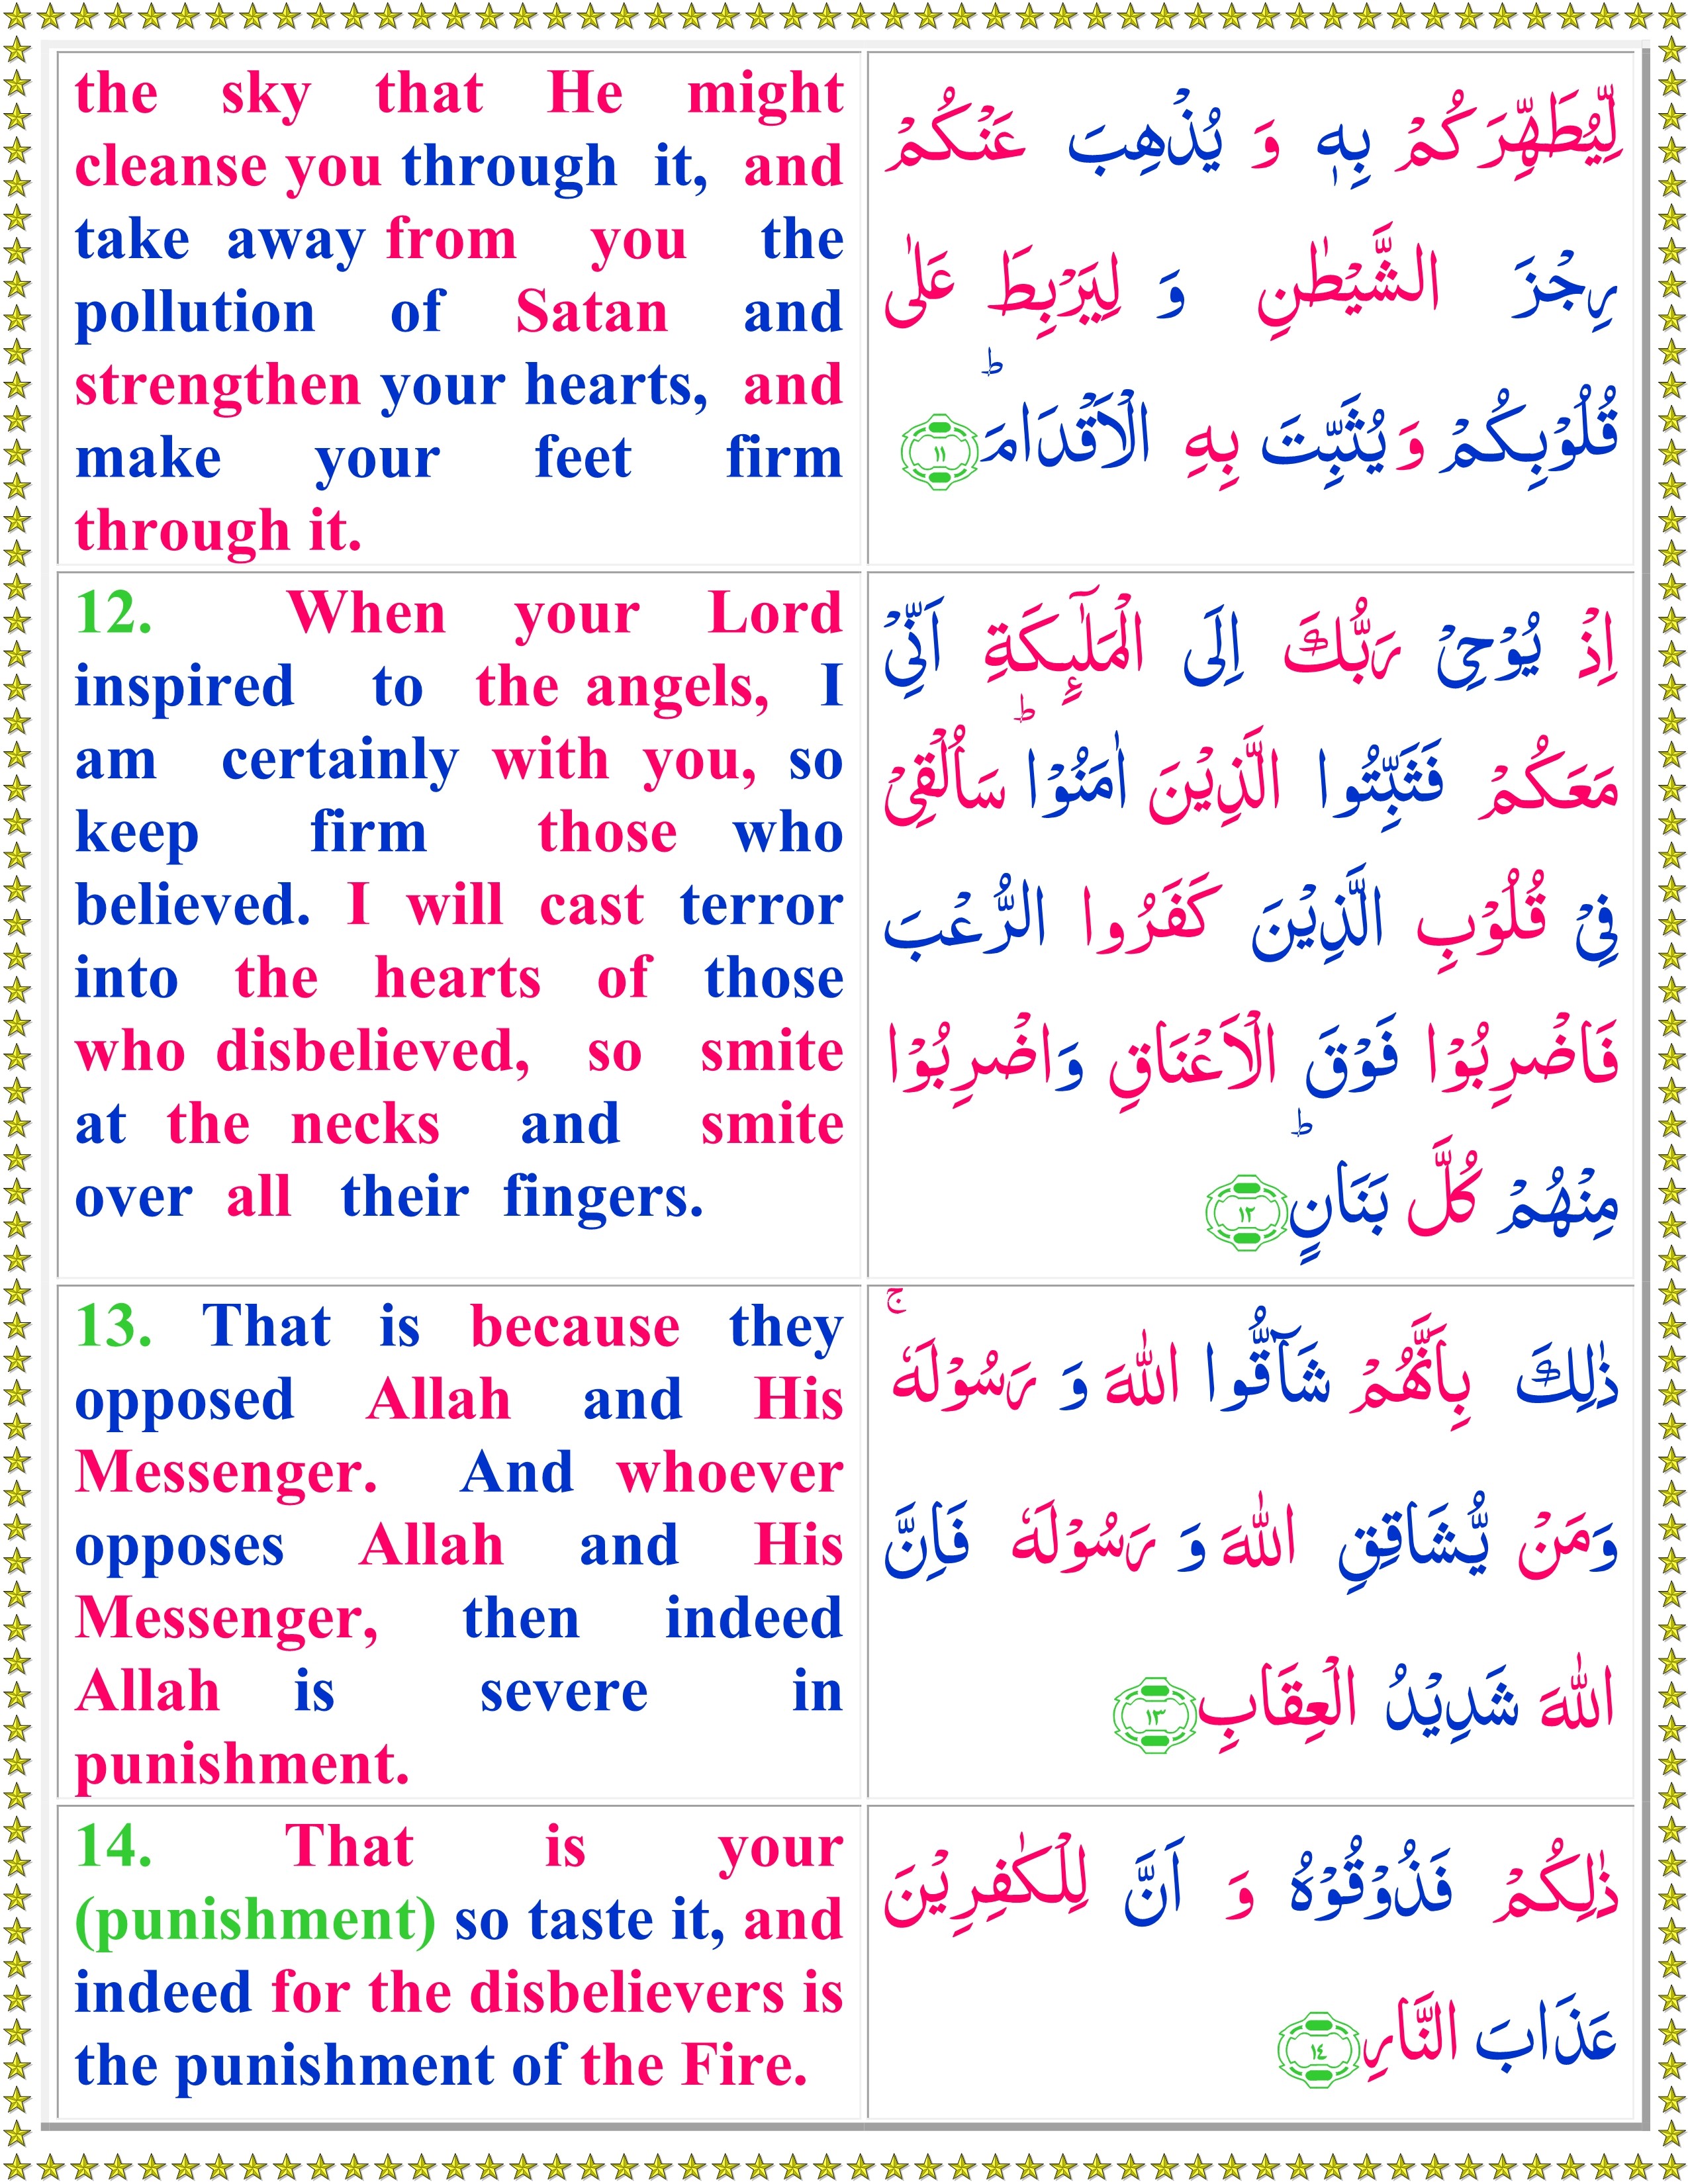 the sky that He might
cleanse you through it, and
take away from you the
pollution of Satan and
strengthen your hearts, and
make your feet firm
through it.
لِّيُطَهِّرَكُمْ بِهٖ وَ يُذْهِبَ عَنْكُمْ
رِجْزَ الشَّيْطٰنِ وَ لِيَرْبِطَ عَلٰى
قُلُوْبِكُمْ وَ يُثَبِّتَ بِهِ الْاَقْدَامَؕ ۱۱
12. When your Lord
inspired to the angels, I
am certainly with you, so
keep firm those who
believed. I will cast terror
into the hearts of those
who disbelieved, so smite
at the necks and smite
over all their fingers.
اِذْ يُوْحِىْ رَبُّكَ اِلَى الْمَلٰٓٮِٕكَةِ اَنِّىْ
مَعَكُمْ فَثَبِّتُوا الَّذِيْنَ اٰمَنُوْاؕ سَاُلْقِىْ
فِىْ قُلُوْبِ الَّذِيْنَ كَفَرُوا الرُّعْبَ
فَاضْرِبُوْا فَوْقَ الْاَعْنَاقِ وَاضْرِبُوْا
مِنْهُمْ كُلَّ بَنَانٍؕ ۱۲
13. That is because they
opposed Allah and His
Messenger. And whoever
opposes Allah and His
Messenger, then indeed
Allah is severe in
punishment.
ذٰلِكَ بِاَنَّهُمْ شَآقُّوا اللّٰهَ وَ رَسُوْلَهٗۚ
وَمَنْ يُّشَاقِقِ اللّٰهَ وَ رَسُوْلَهٗ فَاِنَّ
اللّٰهَ شَدِيْدُ الْعِقَابِ ۱۳
14. That is your
(punishment) so taste it, and
indeed for the disbelievers is
the punishment of the Fire.
ذٰلِكُمْ فَذُوْقُوْهُ وَ اَنَّ لِلْكٰفِرِيْنَ
عَذَابَ النَّارِ ۱٤